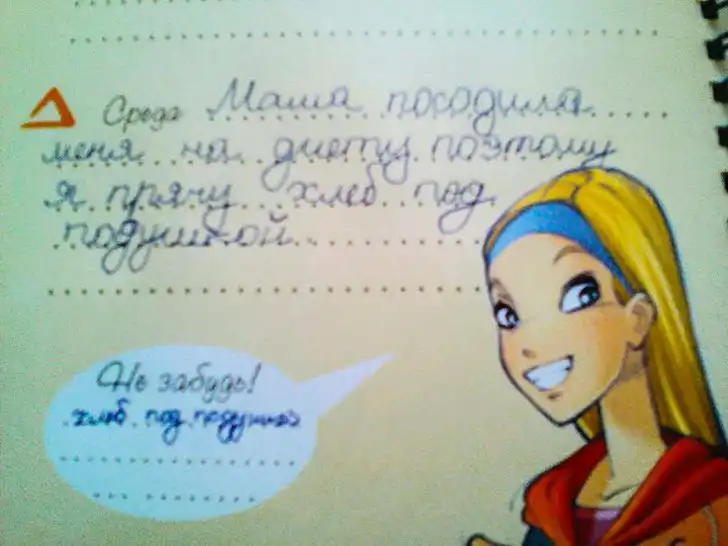 Среда Мама посодила
меня на диету поэтому
я прячу хлеб под
подушкой
Не забудь!
хлеб под подушкой